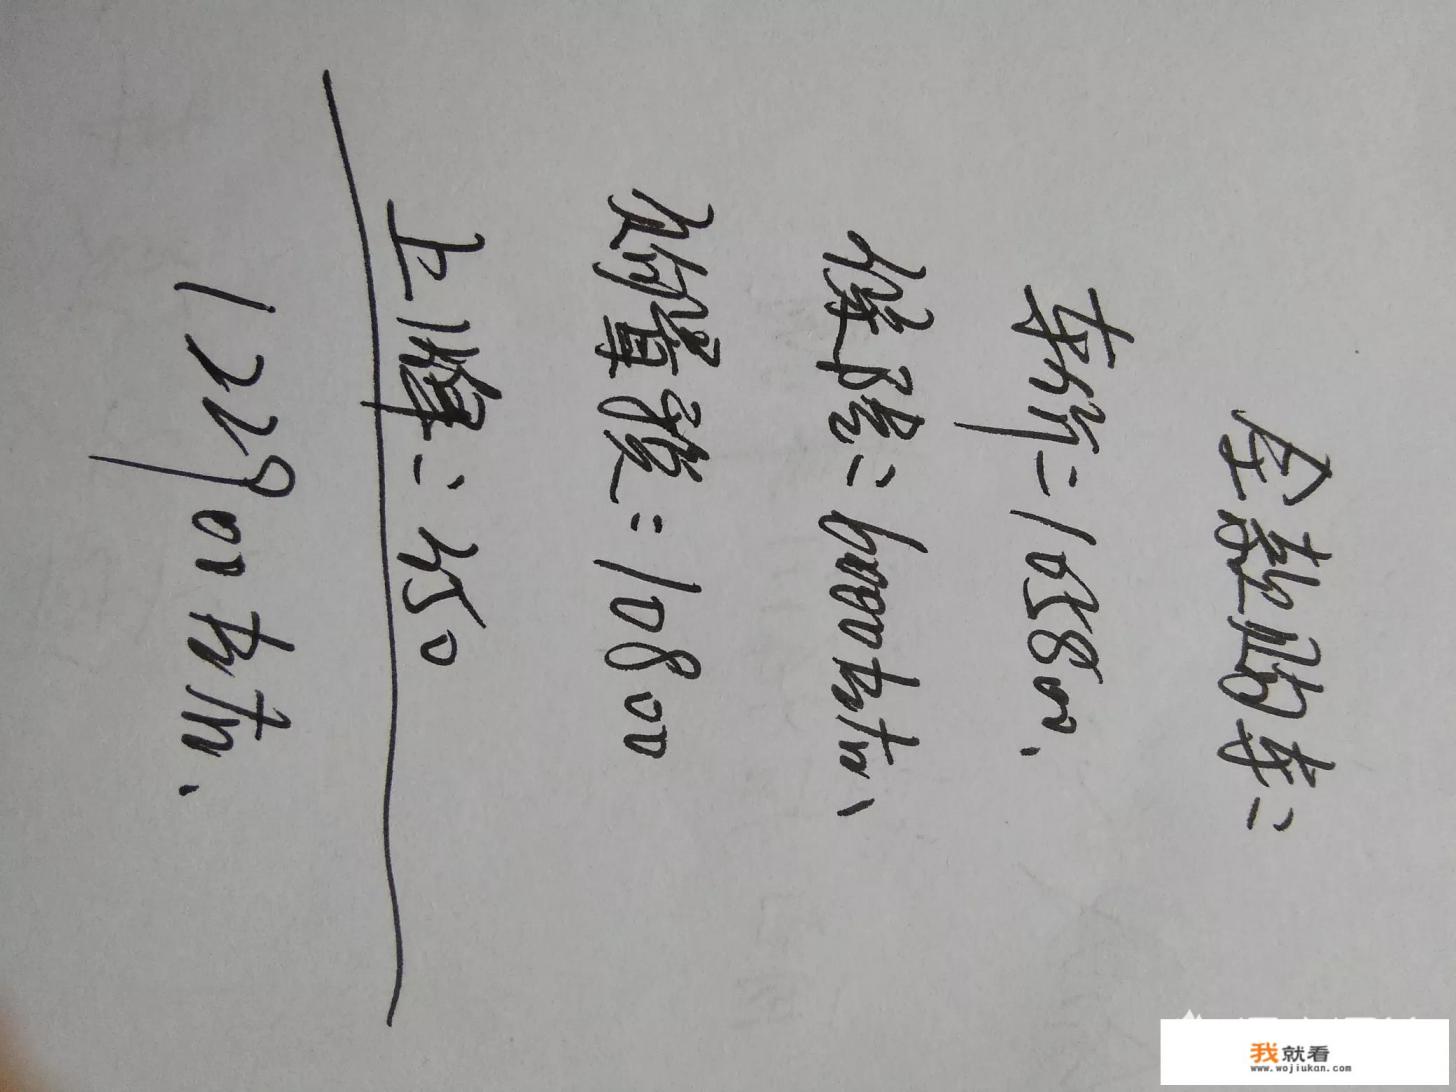 全款购车:
车价:105800、
保险:6000左右、
购置税:10800
上牌:450
122900左右.
我就看
www.wojiukan.com